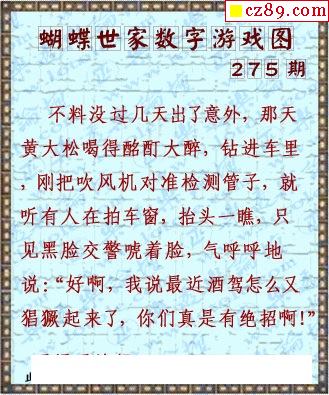 cz89.com
蝴蝶世家数字游戏图
275期
不料没过几天出了意外，那天
黄大松喝得酩酊大醉，钻进车里
，刚把吹风机对准检测管子，就
听有人在拍车窗，抬头一瞧，只
见黑脸交警唬着脸，气呼呼地
说：“好啊，我说最近酒驾怎么又
猖獗起来了，你们真是有绝招啊！”